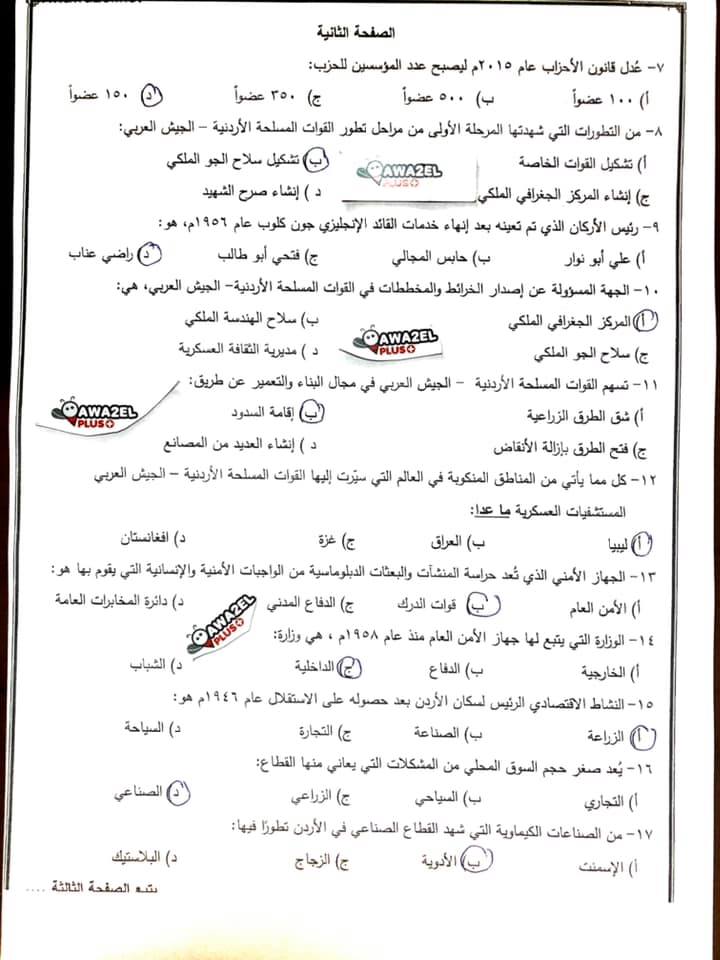 الصفحة الثانية
٧- عُدل قانون الأحزاب عام ٢٠١٥م ليصبح عدد المؤسسين للحزب:
أ) ١٠٠ عضواً ب) ٥٠٠ عضواً ج) ٣٥٠ عضواً د) ١٥٠ عضواً
٨- من التطورات التي شهدتها المرحلة الأولى من مراحل تطور القوات المسلحة الأردنية – الجيش العربي:
أ) تشكيل القوات الخاصة ب) تشكيل سلاح الجو الملكي
AWA2EL
PLUS+
ج) إنشاء المركز الجغرافي الملكي د ) إنشاء صرح الشهيد
٩- رئيس الأركان الذي تم تعيينه بعد إنهاء خدمات القائد الإنجليزي جون كلوب عام ١٩٥٦م، هو:
أ) علي أبو نوار ب) حابس المجالي ج) فتحي أبو طالب د) راضي عناب
١٠- الجهة المسؤولة عن إصدار الخرائط والمخططات في القوات المسلحة الأردنية– الجيش العربي، هي:
أ) المركز الجغرافي الملكي ب) سلاح الهندسة الملكي
AWA2EL
PLUS+
ج) سلاح الجو الملكي د ) مديرية الثقافة العسكرية
١١- تسهم القوات المسلحة الأردنية – الجيش العربي في مجال البناء والتعمير عن طريق:
أ) شق الطرق الزراعية ب) إقامة السدود
AWA2EL
PLUS+
ج) فتح الطرق بإزالة الأنقاض د ) إنشاء العديد من المصانع
١٢- كل مما يأتي من المناطق المنكوبة في العالم التي سيّرت إليها القوات المسلحة الأردنية – الجيش العربي
المستشفيات العسكرية ما عدا:
أ) ليبيا ب) العراق ج) غزة د) افغانستان
١٣- الجهاز الأمني الذي تُعد حراسة المنشآت والبعثات الدبلوماسية من الواجبات الأمنية والإنسانية التي يقوم بها هو:
أ) الأمن العام ب) قوات الدرك ج) الدفاع المدني د) دائرة المخابرات العامة
AWA2EL
PLUS+
١٤- الوزارة التي يتبع لها جهاز الأمن العام منذ عام ١٩٥٨م ، هي وزارة:
أ) الخارجية ب) الدفاع ج) الداخلية د) الشباب
١٥- النشاط الاقتصادي الرئيس لسكان الأردن بعد حصوله على الاستقلال عام ١٩٤٦م هو:
أ) الزراعة ب) الصناعة ج) التجارة د) السياحة
١٦- يُعد صغر حجم السوق المحلي من المشكلات التي يعاني منها القطاع:
أ) التجاري ب) السياحي ج) الزراعي د) الصناعي
١٧- من الصناعات الكيماوية التي شهد القطاع الصناعي في الأردن تطورًا فيها:
أ) الإسمنت ب) الأدوية ج) الزجاج د) البلاستيك
يتبع الصفحة الثالثة ....